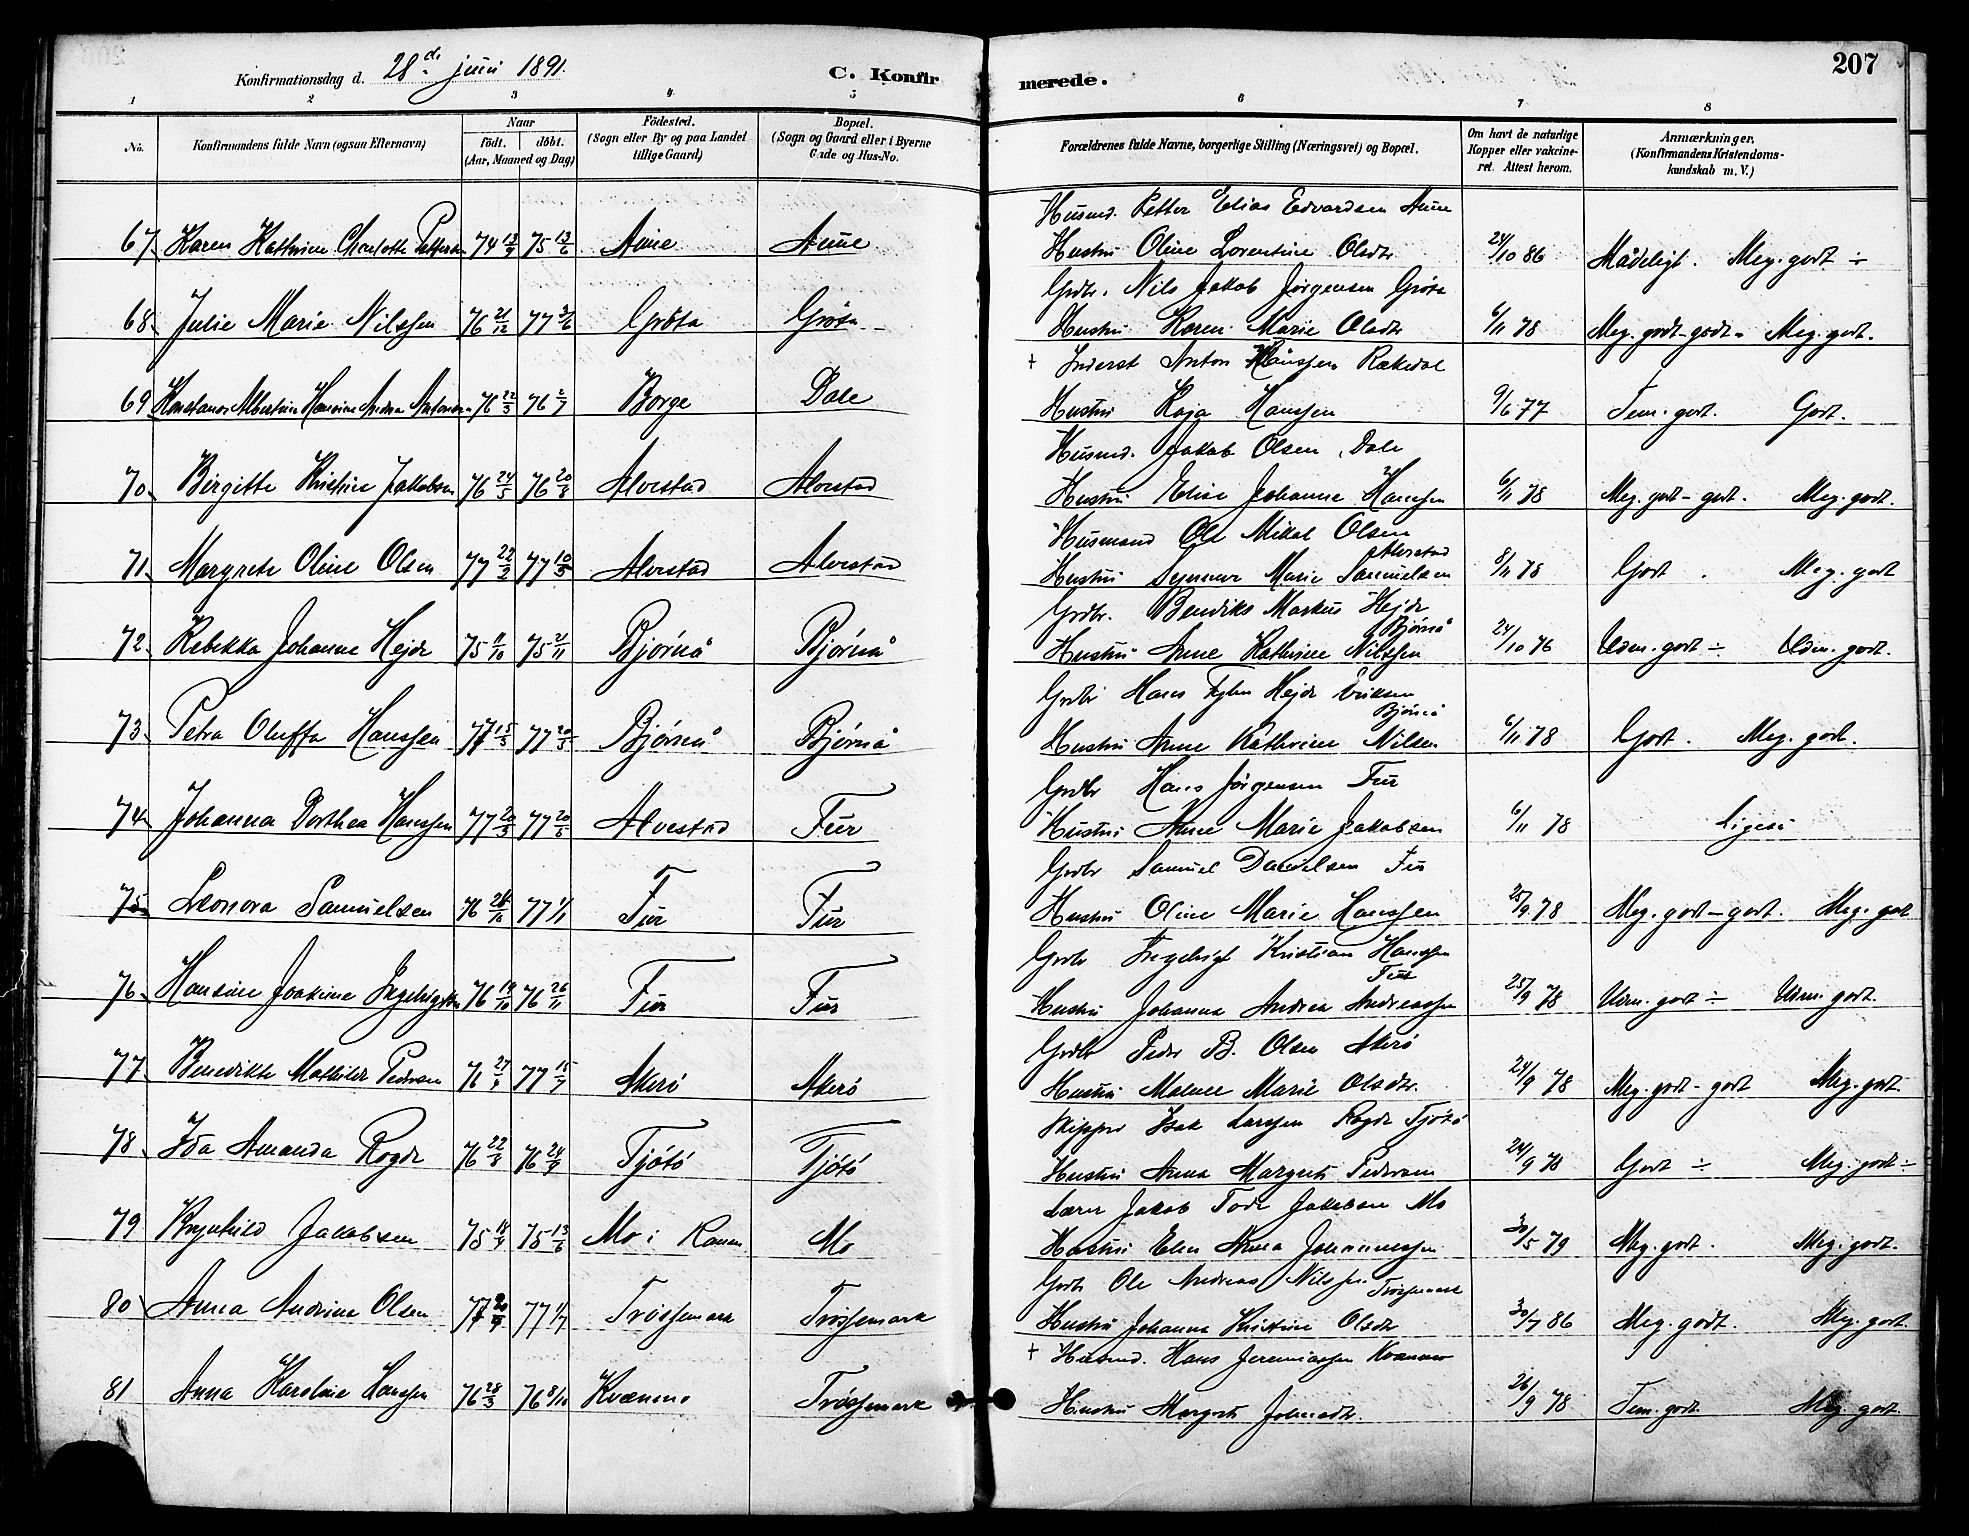 Konfirmationsdag d. 28de juni 1891. C. Konfirmerede. 207
1 2 3 4 5 6 7 8
No. Konfirmandens fulde Navn (ogsaa Efternavn) Naar födt. döbt. (Aar, Maaned og Dag) Födested. (Sogn eller By og paa Landet tillige Gaard) Bopæl. (Sogn og Gaard eller i Byerne Gade og Hus-No. Forældrenes fulde Navne, borgerlige Stilling (Næringsvei) og Bopæl. Om havt de naturlige Kopper eller vakcineret. Attest herom. Anmærkninger, (Konfirmandens Kristendomskundskab m. V.)
Husmd. Petter Elias Edvardsen Aune
67 Karen Kathrine Charlotte Pettersen 74 13/9 75 13/6 Aune Aune Hustru Oline Lorentine Olsdtr 24/10 86 Mådeligt. Meg. godt ÷
Grdbr. Nils Jakob Jørgensen Grøta
68 Julie Marie Nilssen 76 21/12 77 3/6 Grøta Grøta Hustru Karen Marie Olsdtr 6/11 78 Meg. godt-godt- Meg. godt.
+ Inderst Anton Hanssen Rakedal
69 Albertine Hansine Antonsen 76 22/5 76 2/7 Borge Dale Hustru Kaja Hanssen 9/6 77 Tem. godt. Godt.
Husmd. Jakob Olsen, Dale
70 Birgitte Kristine Jakobsen 76 24/5 76 20/8 Alvestad Alvestad Hustru Elise Johanne Hanssen 6/11 78 Meg. godt-godt. Meg. godt.
Husmand Ole Mikal Olsen Alvestad
71 Margrete Oline Olsen 77 22/2 77 10/5 Alvestad Alvestad Hustru Marie Samuelsen 8/11 78 Godt. Meg. godt
Grdbr. Bendiks Markus Hejde Bjørnå
72 Rebekka Johanne Hejde 75 11/10 75 21/11 Bjørnå Bjørnå Hustru Anne Kathrine Nilssen 24/10 76 Udm. godt ÷ Udm. godt.
Grdbr Hans Hejde Eriksen Bjørnå
73 Petra Oluffa Hanssen 77 15/3 77 20/5 Bjørnå Bjørnå Hustru Anne Kathrine Nilsen 6/11 78 Godt. Meg. godt.
Grdbr Hans Jörgensen Fur
74 Johanna Dorthea Hanssen 77 20/3 77 20/5 Alvestad Fur Hustru Anne Marie Jakobsen 6/11 78 ligeså
Grdbr Samuel Danielsen Fur
75 Leonora Samuelsen 76 26/10 77 1/1 Fur Fur Hustru Oline Marie Hanssen 25/9 78 Meg. godt-godt. Meg. godt
Grdbr Ingebrigt Kristian Hanssen Fur
76 Hansine Joakime Ingebrigtsen 76 19/10 76 26/11 Fur Fur Hustru Johanna Andrea Andreassen 25/9 78 Udm. godt ÷ Udm. godt.
Grdbr Peder B. Olsen Akerö
77 Benedikte Mathilde Pedersen 76 27/9 77 15/7 Akerö Akerö Hustru Malene Marie Olsdtr. 24/9 78 Meg. godt-godt Meg. godt.
Skipper Isak Larssen Rogde Tjötö
78 Ida Amanda Rogde 76 22/8 76 24/9 Tjötö Tjötö Hustru Anna Margrete Pedersen 24/9 78 Godt ÷ Meg. godt ÷
Lærer Jakob Tode Jakobsen Mo
79 Jakobsen 75 18/4 75 13/6 Mo i Ranen Mo Hustru Elen Anna Johannessen 30/5 79 Meg. godt. Meg. godt.
Grdbr Ole Andreas Nilssen Trössemark
80 Anna Andrine Olsen 77 77 1/7 Trössemark Trössemark Hustru Johanna Kristine Olsdtr 30/7 86 Meg. godt. Meg. godt.
+ Husmd. Hans Jeremiassen
81 Anna Karoline Hanssen 76 28/3 76 8/10 Trössemark Hustru Margrete 26/9 78 Tem. godt. Meg. godt.